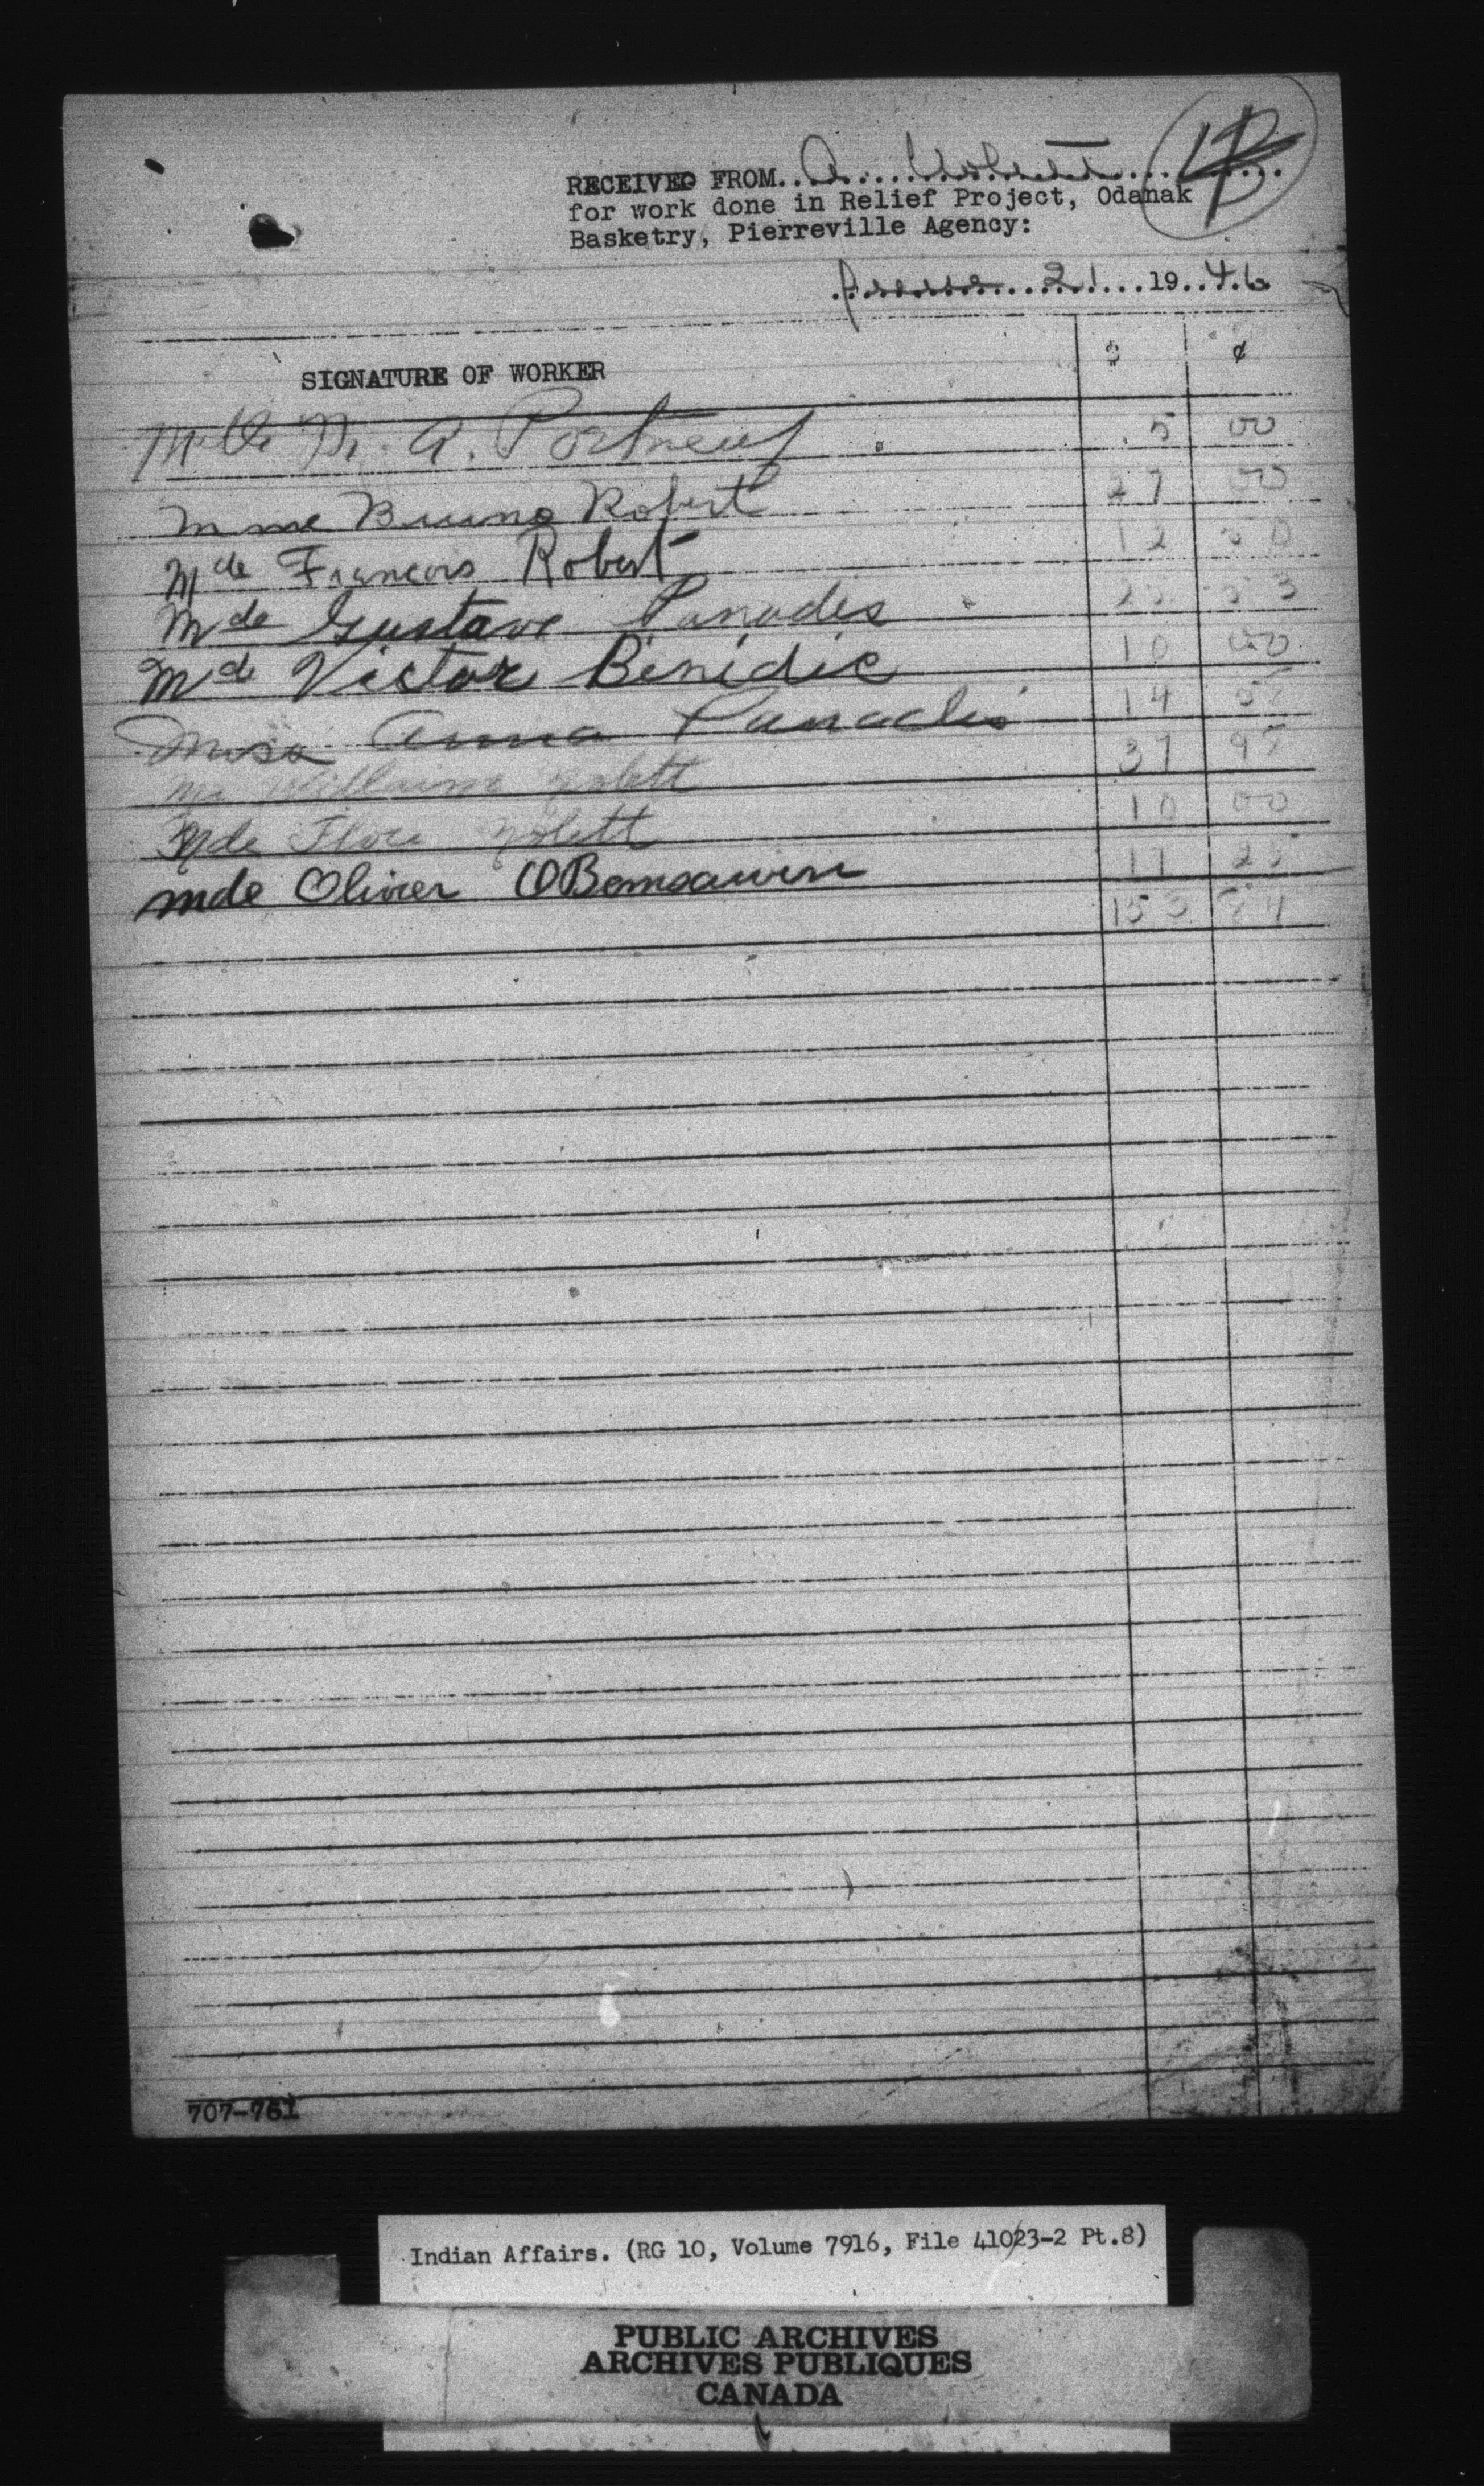 RECEIVED FROM
for work done in Relief Project, Odanak
Basketry, Pierreville Agency:
21 1946
$ ¢
SIGNATURE OF WORKER
Mlle M. A. Portneuf 5 00
Mme Bruno Robert 27 00
Mde Francois Robert 12 50
Mde Gustave Panadis
Md Victor Bénédic 10 00
Miss Anna Panadis 14
Mr William Nolett 37 95
Mde Flora Nolett 10 00
mde Olivier OBomsawin 17 25
153
707-761
Indian Affairs. (RG 10, Volume 7916, File 41023-2 Pt.8)
PUBLIC ARCHIVES
ARCHIVES PUBLIQUES
CANADA